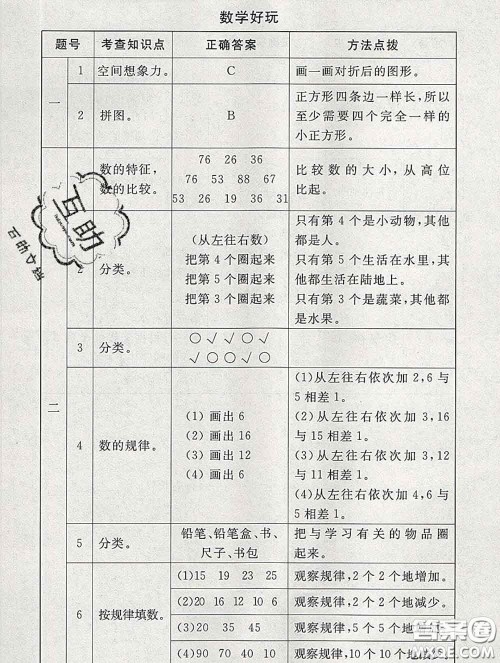 数学好玩
题号 考查知识点 正确答案 方法点拨
一
1 空间想象力。 C 画一画对折后的图形。
2 拼图。 B 正方形四条边一样长,所以
至少需要四个完全一样的
小正方形。
二
数的特征,
数的比较。
76 26 36
76 53 88 67
53 26 19 36 31
比较数的大小,从高位
比起。
2 分类。
(从左往右数)
把第4个圈起来
把第5个圈起来
把第3个圈起来
只有第4个是小动物,其他
都是人。
只有第5个生活在水里,其
他都生活在陆地上。
只有第3个是蔬菜,其他都
是水果。
3 分类。
○√○√√
√○○√○
4 数的规律。
(1)画出6
(2)画出6
(3)画出12
(4)画出6
(1)从左往右依次加2,6与
5相差1。
(2)从左往右依次加3,16
与15相差1。
(3)从左往右依次加3,12
与11相差1。
(4)从左往右依次加4,6与
5相差1。
5 分类。
铅笔、铅笔盒、书、
尺子、书包
把与学习有关的物品圈
起来。
6 按规律填数。
(1)15 19 23 25 观察规律,2个2个地增加。
(2)20 16 12 10 6 观察规律,2个2个地减少。
(3)20 35 45 观察规律,5个5个地
(4)90 70 40 10 观察规律,10个10个地减少
互助
互助文
作业